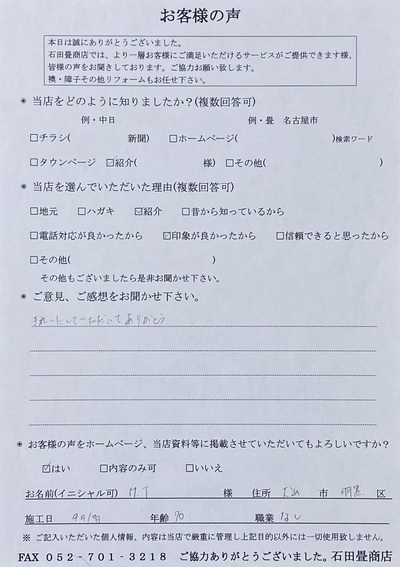 お客様の声
本日は誠にありがとうございました。
石田畳商店では、より一層お客様にご満足いただけるサービスがご提供できます様、
皆様の声をお聞きしております。ご協力お願い致します。
襖・障子その他リフォームもお任せ下さい。
※ 当店をどのように知りましたか？(複数回答可)
例・中日 例・畳 名古屋市
□チラシ( 新聞) □ホームページ( )検索ワード
□タウンページ ☑紹介( 様) □その他( )
※ 当店を選んでいただいた理由(複数回答可)
□地元 □ハガキ ☑紹介 □昔から知っているから
□電話対応が良かったから ☑印象が良かったから □信頼できると思ったから
□その他( )
その他もございましたら是非お聞かせ下さい。
※ ご意見、ご感想をお聞かせ下さい。
きれいにしていただいてありがとう
※ お客様の声をホームページ、当店資料等に掲載させていただいてもよろしいですか？
☑はい □内容のみ可 □いいえ
お名前(イニシャル可) M.T 様 住所 市 区
施工日 年齢 90 職業 なし
※ ご記入いただいた個人情報、内容は当店で厳重に管理し上記目的以外には一切使用致しません。
FAX 052-701-3218 ご協力ありがとうございました。石田畳商店